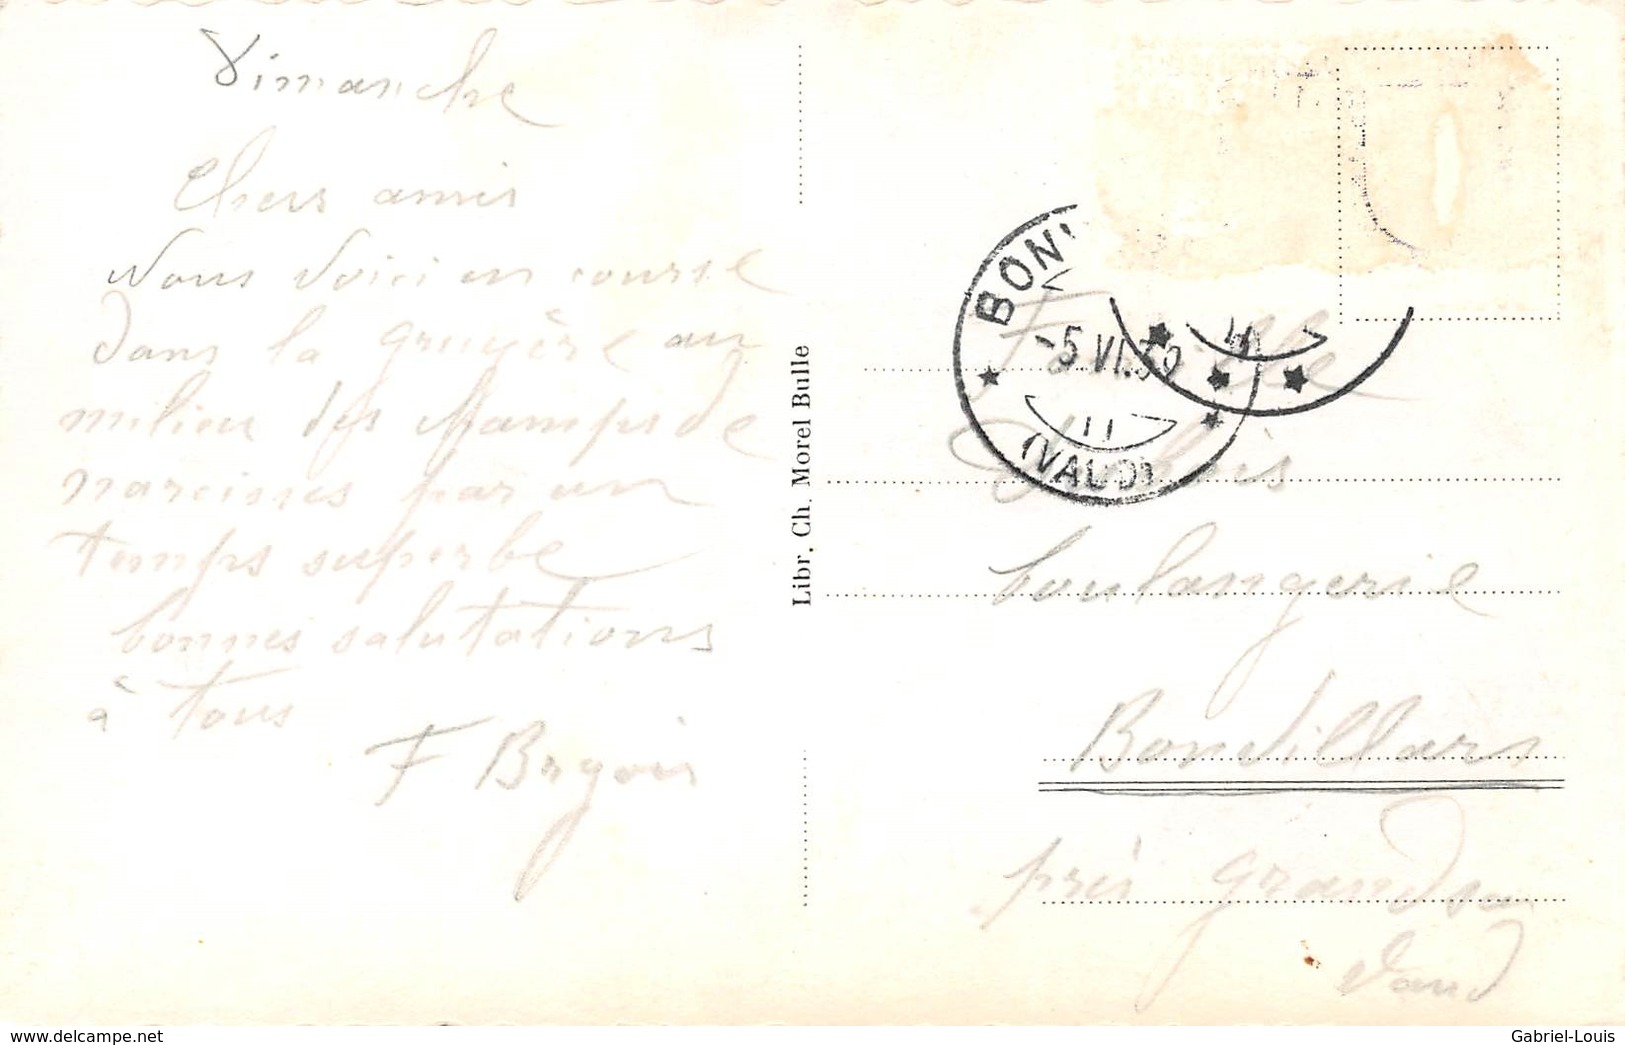 Dimanche
Chers amis
Nous voici en course
dans la gruyère au
milieu des champs de
narcisses par un
temps superbe
bonnes salutations
à tous
F
Libr. Ch. Morel Bulle
BON
-5.VI.
(VAUD)
Famille
boulangerie
Bonvillars
près grandson
Vaud
www.delcampe.net
Gabriel-Louis